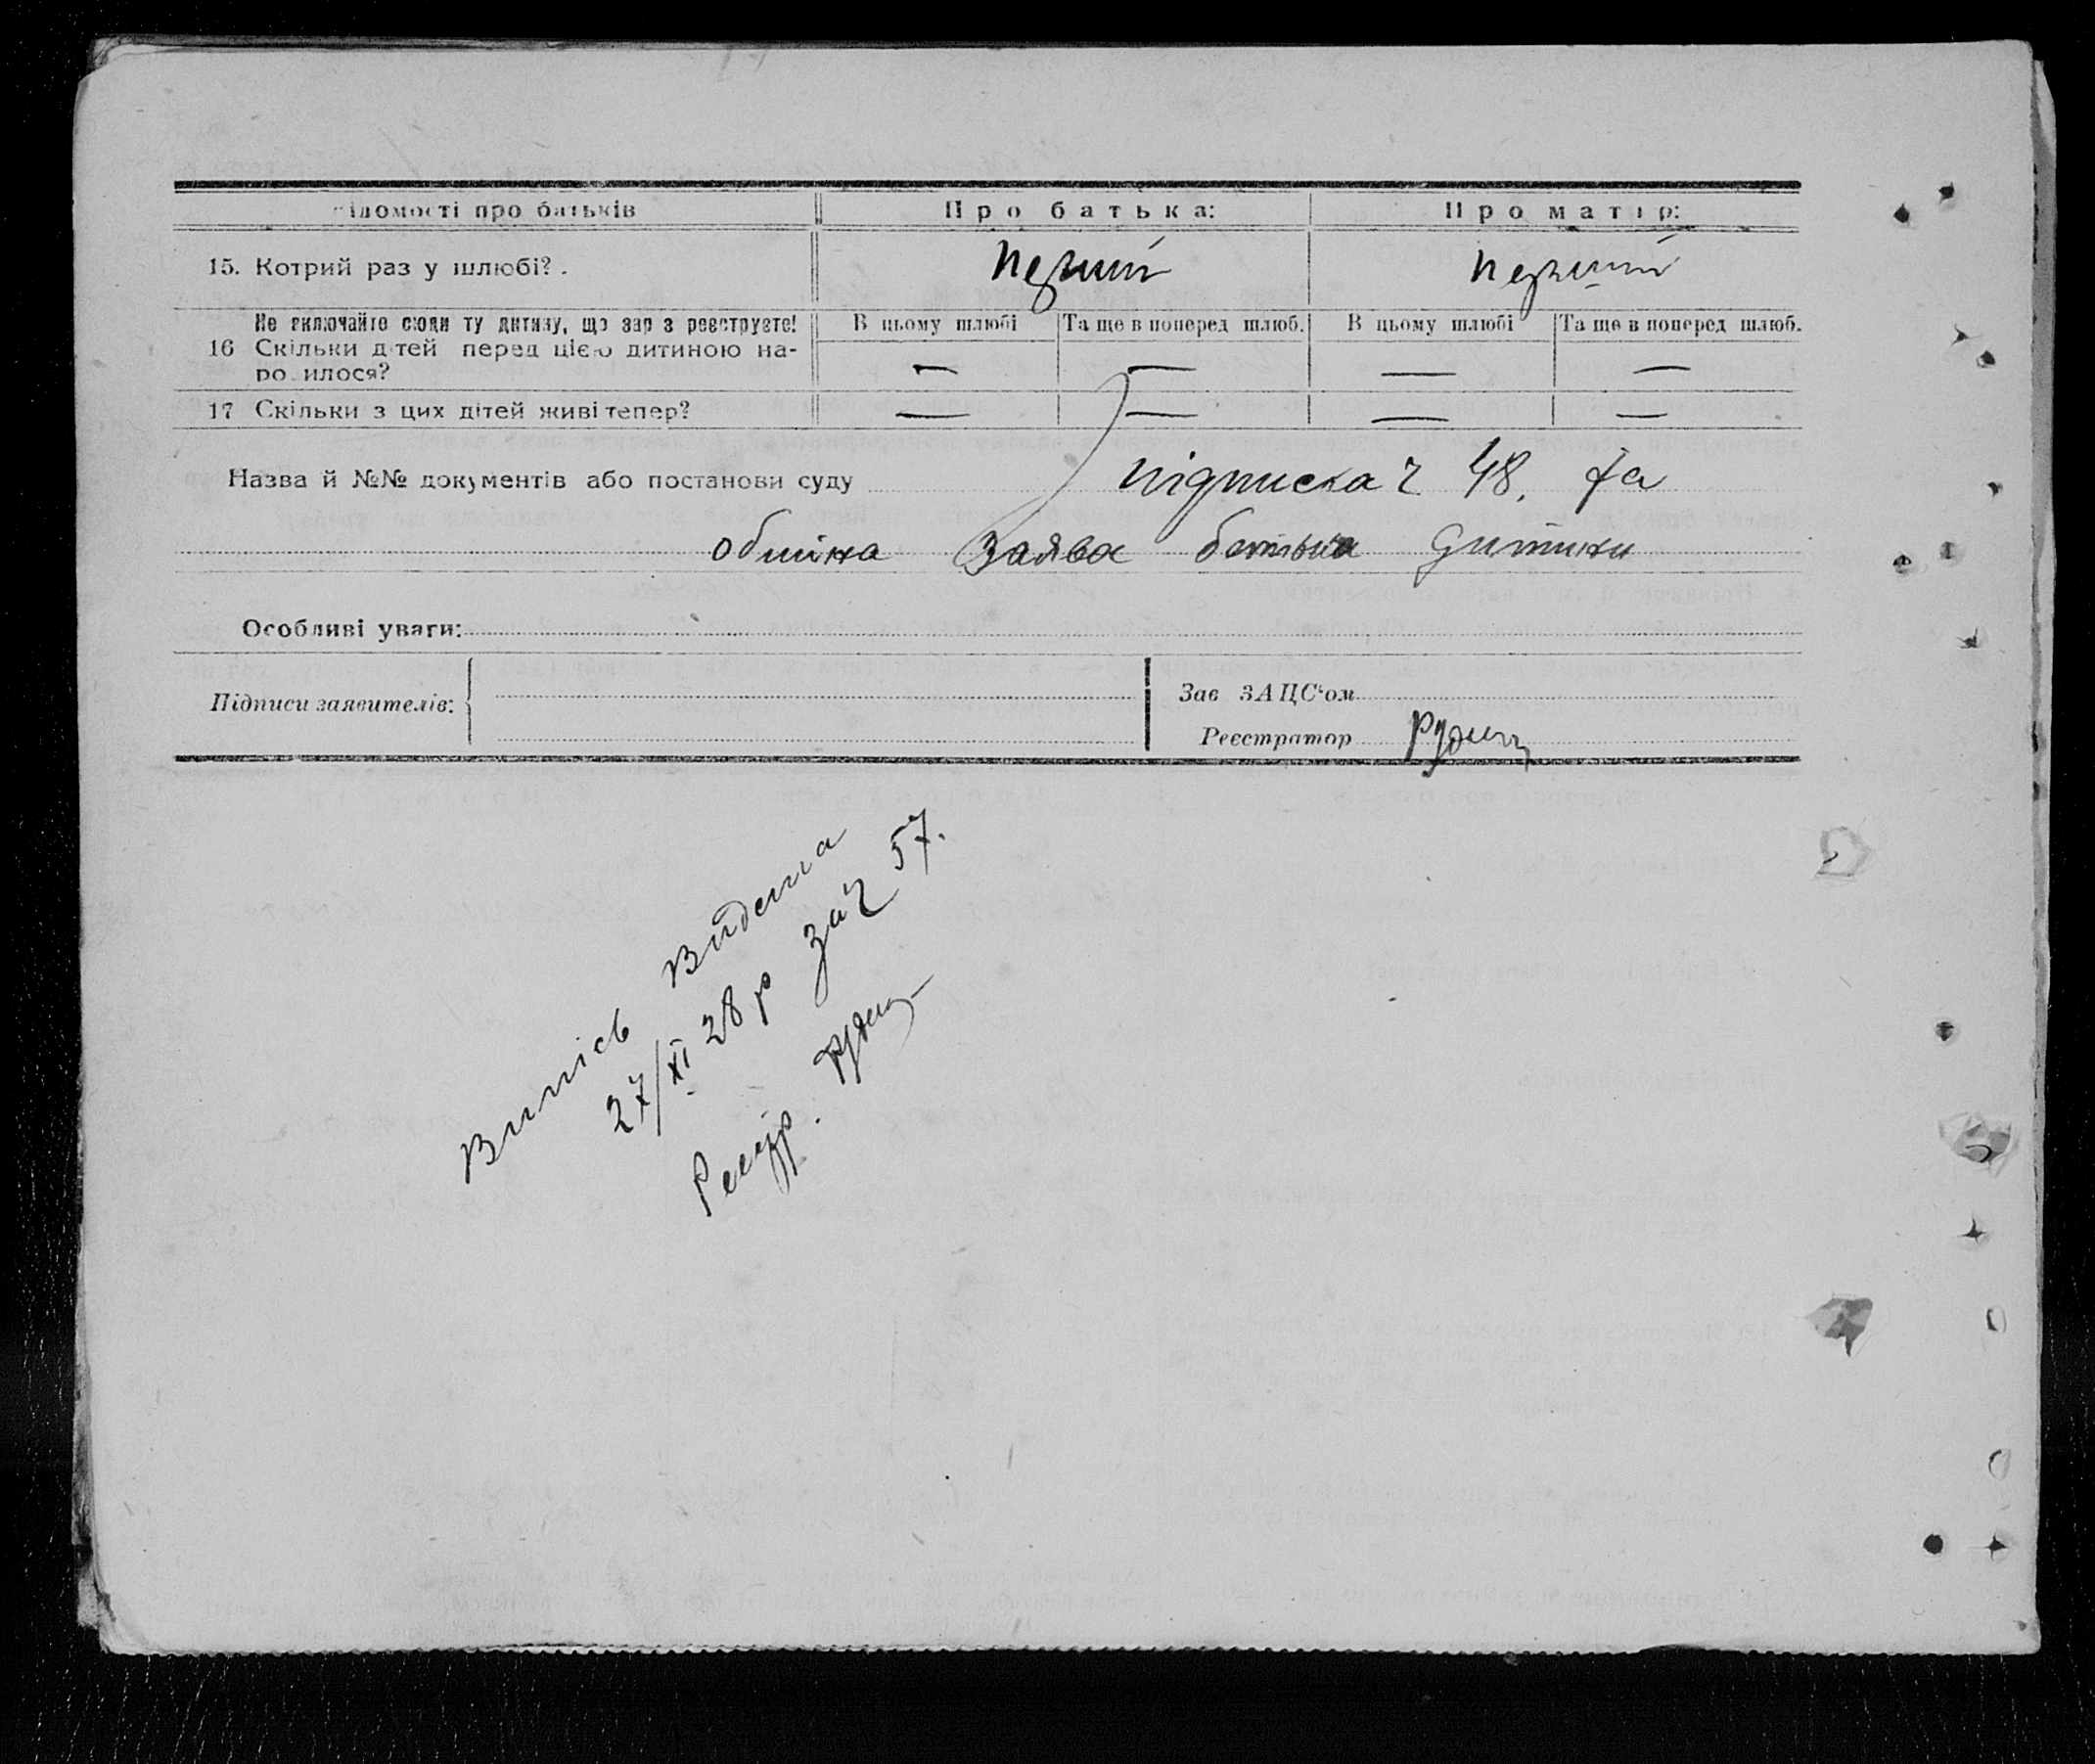 ідомості про батьків Про батька: Про матір:
15. Котрий раз у шлюбі?. перший перший
Не включайте сюди ту дитину, що зар з реєструєте! В цьому шлюбі Та ще в поперед шлюб. В цьому шлюбі Та ще в поперед шлюб.
16 Скільки дітей перед цією дитиною на-
ро илося? — — — —
17 Скільки з цих дітей живі тепер? — — — —
Назва й №№ документів або постанови суду підписка ч 48. та
обміна заява батька дитини
Особливі уваги:
Підписи заявителів: Зав ЗАЦС'ом
Реєстратор
Випись видена
27/XI 28 р за ч 57.
Реєстр.